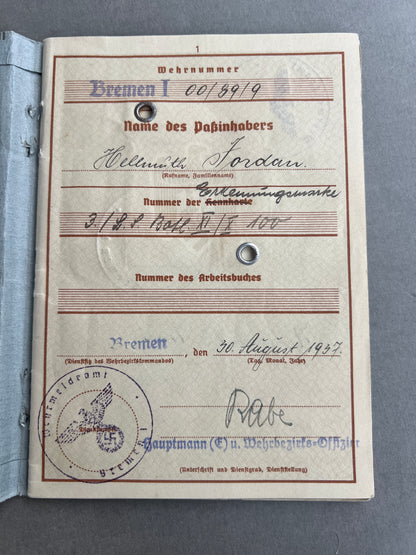 1
Wehrnummer
Bremen I 00/39/9
Name des Paßinhabers
Hellmuth Jordan.
(Rufname, Familienname)
Erkennungsmarke
Nummer der Kennkarte
3./L.S. Batl XI/I 100
Nummer des Arbeitsbuches
Bremen, den 30. August 1937.
(Dienstsitz des Wehrbezirkskommandos) (Tag, Monat, Jahr)
Wehrmeldeamt
Bremen I
Rabe
Hauptmann (E) u. Wehrbezirks-Offizier
(Unterschrift und Dienstgrad, Dienststellung)